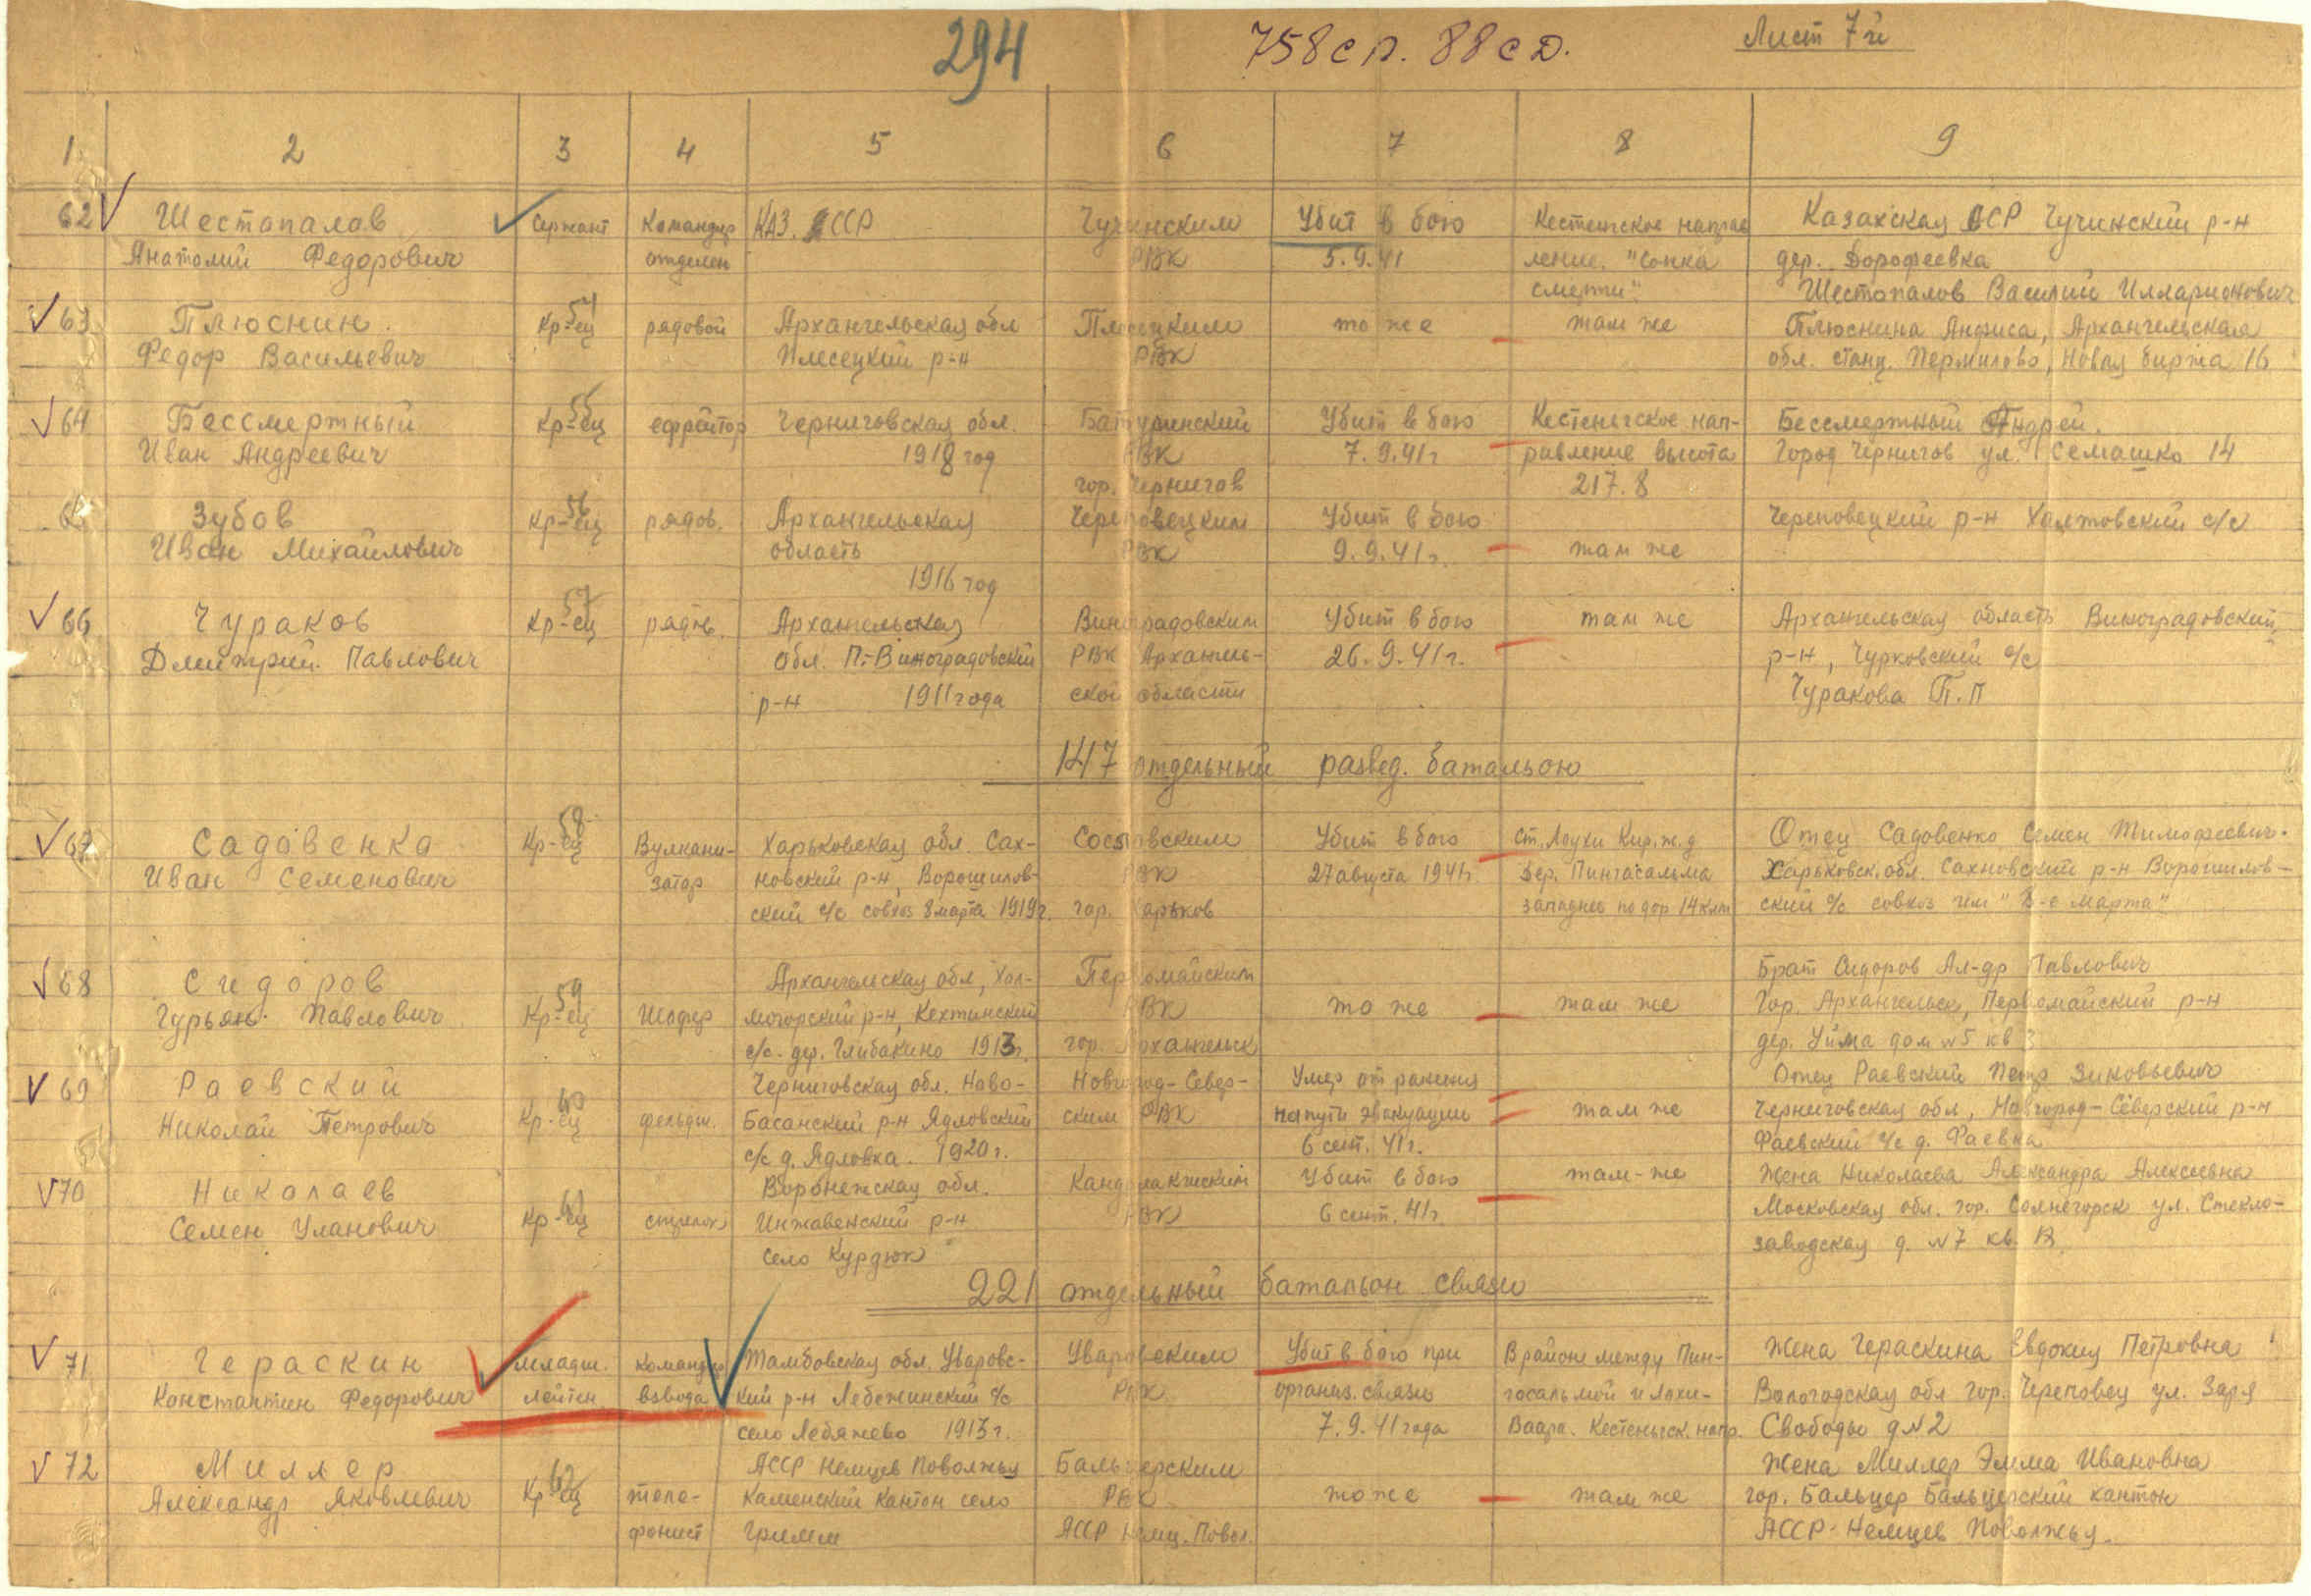 294
758 сп. 88 сд.
Лист 7й
1 2 3 4 5 6 7 8 9
62 Шестопалов Сержант Командир КАЗ. ССР Чучинским Убит в бою Кестеньгское направ Казахская ССР Чучинский р-н
Анатолий Федорович отделен РВК 5.9.41 ление. "Сопка дер. Дорофеевка
смерти". Шестопалов Василий Илларионович
63 Плюснин Кр-ец 54 рядовой Архангельская обл Плесецким то же там же Плюснина Анфиса, Архангельская
Федор Васильевич Плесецкий р-н РВК обл. станц. Пермилово, Новая биржа 16
64 Бессмертный Кр-ец 55 ефрейтор Черниговская обл. Батуринский Убит в бою Кестеньгское нап- Бессмертный Андрей.
Иван Андреевич 1918 год РВК 7.9.41г равление высота Город Чернигов ул. Семашко 14
гор. Чернигов 217.8
Зубов Кр-ец 56 рядов. Архангельская Череповецким Убит в бою Череповецкий р-н с/с
Иван Михайлович область РВК 9.9.41г. там же
1916 год
66 Чураков Кр-ец 57 рядов. Архангельская Виноградовским Убит в бою там же Архангельская область Виноградовский
Дмитрий Павлович обл. П.-Виноградовский РВК Архангель- 26.9.41г. р-н, Чурковский с/с
р-н 1911 года ской области Чуракова П.П
147 отдельный развед. батальон
67 Садовенко Кр-ец 58 Вулкани- Харьковская обл. Сах- Сосновским Убит в бою ст. Лоухи Кир.ж.д Отец Садовенко Семен Тимофеевич.
Иван Семенович затор новский р-н, Ворошилов- РВК 27 августа 1941г дер. Пингасальма Харьковск. обл. Сахновский р-н Ворошилов-
ский с/с совхоз 8 марта 1919г. гор. Харьков западнее по дор 14 клм ский с/с совхоз им "8-е марта"
68 Сидоров Архангельская обл, Хол- Первомайским Брат Сидоров Ал-др Павлович
Гурьян Павлович Кр-ец 59 Шофер могорский р-н, Кехтинский РВК то же там же Гор. Архангельск, Первомайский р-н
с/с. дер. Глибакино 1913г. гор. Архангельск дер. Уйма дом №5 кв 3
69 Раевский Черниговская обл. Ново- Новгород-Север- Умер от ранения Отец Раевский Петр Зиновьевич
Николай Петрович Кр-ец 60 фельдш. Басанский р-н Ядловский ским РВК на пути эвакуации там же Черниговская обл, Новгород-Северский р-н
с/с д. Ядловка. 1920г. 6 сент. 41г. Фаевский с/с д. Фаевка
70 Николаев Воронежская обл. Кандалакжским Убит в бою там-же Жена Николаева Александра Алексеевна
Семен Уланович Кр-ец 61 стрелок Инжавенский р-н РВК 6 сент. 41г. Московская обл. гор. Солнегорск ул. Стекло-
село Курдюк заводская д. №7 кв.
221 отдельный батальон связи
71 Гераскин младш. командир Тамбовская обл. Уваровс- Уваровским Убит в бою при В районе между Пин- Жена Гераскина Евдокия Петровна
Константин Федорович лейтен взвода кий р-н Лебежинский с/с РВК организ. связи госальмой и Лохи- Вологодская обл гор. Череповец ул. Заря
село Лебяжево 1913г. 7.9.41 года Ваара. Кестеньгск. напр. Свободы д №2
72 Миллер АССР Немцев Поволжья Бальцерским Жена Миллер Эмма Ивановна
Александр Яковлевич Кр-ец 62 теле- Каменский Кантон село РВК то же там же гор. Бальцер Бальцерский кантон
фонист Гримм АССР Немц. Повол. АССР Немцев Поволжья.